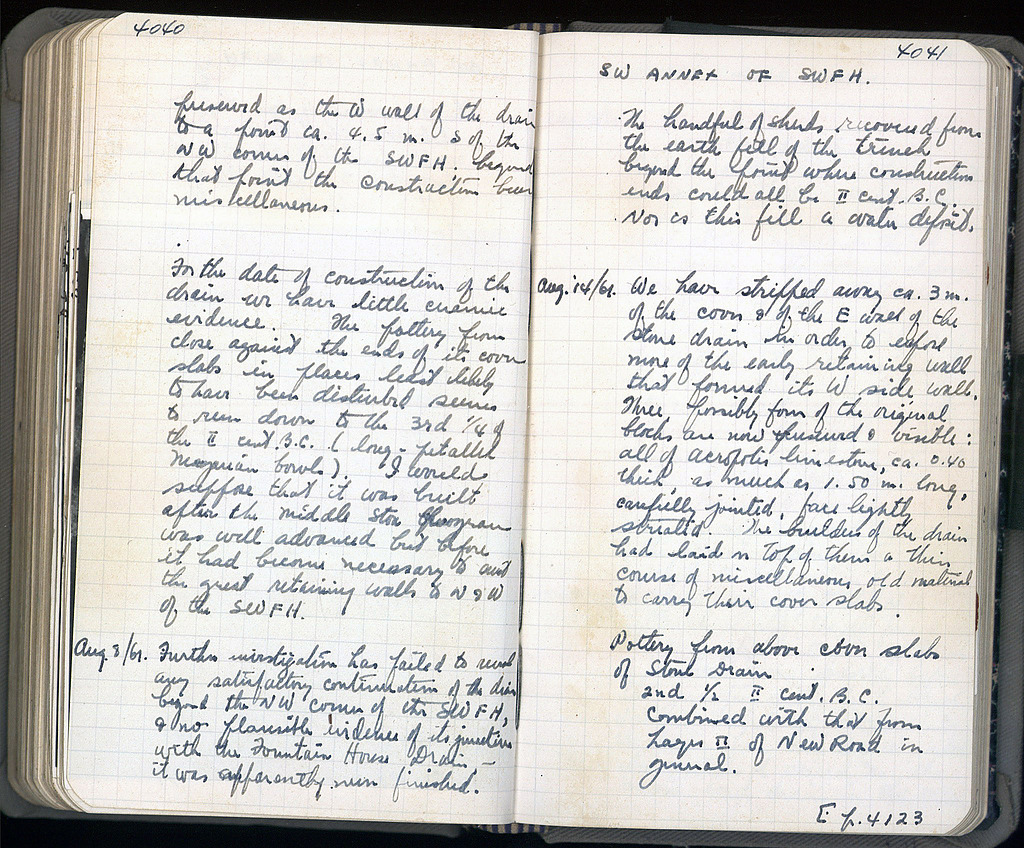 4040
preserved as the W wall of the drain
to a point ca. 4.5 m. S of the
NW corner of the SWFH. beyond
that point the construction been
miscellaneous.
For the date of construction of the
drain we have little ceramic
evidence. The pottery from
close against the ends of its cover
slabs in places least likely
to have been disturbed seems
to run down to the 3rd 1/4 of
the II cent. B.C. (long-petalled
Megarian bowls). I would
suppose that it was built
after the middle Stoa program
was well advanced but before
it had become necessary to
the great retaining walls to N & W
of the SWFH.
Aug. 8/61. Further investigation has failed to reveal
any satisfactory continuation of the drain
beyond the NW corner of the SWFH,
& no plausible evidence of its junction
with the Fountain House Drain, –
it was apparently never finished.
4041
SW ANNEX OF SWFH.
The handful of sherds recovered from
the earth fill of the trench
beyond the point where construction
ends could all be II cent. B.C.
Nor is this fill a water deposit.
Aug. 14/61. We have stripped away ca. 3 m.
of the cover & of the E wall of the
Stone drain in order to expose
more of the early retaining wall
that formed its W side wall.
Three, possibly four of the original
blocks are now preserved & visible:
all of acropolis limestone, ca. 0.40
thick, as much as 1.50 m. long,
carefully jointed, face lightly
striated. The builders of the drain
had laid on top of them a thin
course of miscellaneous, old material
to carry their cover slabs.
Pottery from above cover slabs
of Stone Drain.
2nd 1/2 II cent. B.C.
Combined with that from
Layer II of New Road in
general.
E p. 4123